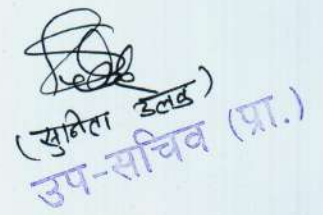 (सुनिता डलब)
उप-सचिव (प्रा.)